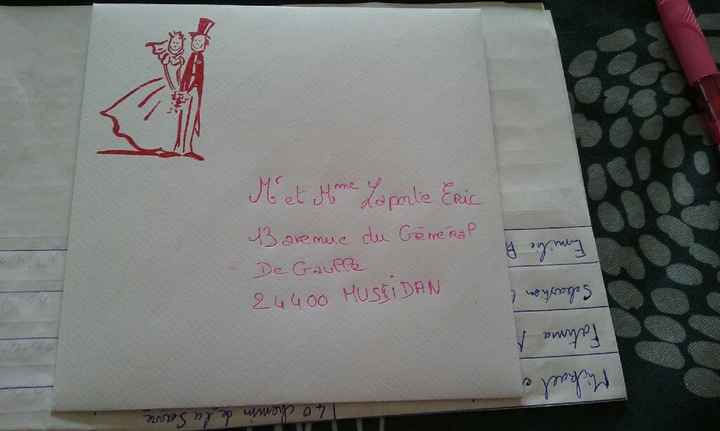 Mr et Mme Laporte Eric
13 avenue du Général
De Gaulle
24400 MUSSIDAN
Emilie
Sebastien
Fatima
Mickael
140 chemin de la Serre